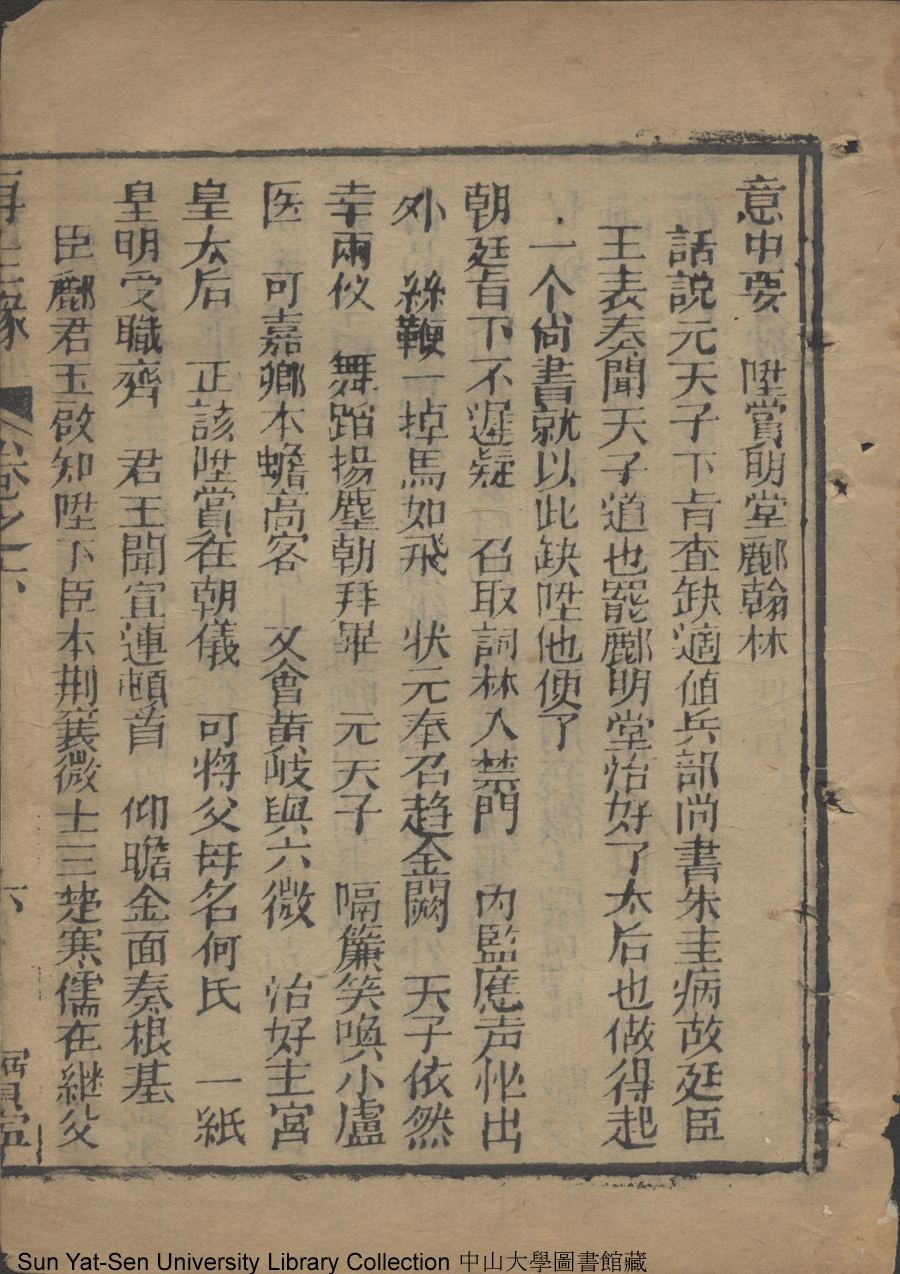 意中要　陞賞明堂酈翰林
話說元天子下旨查缺適值兵部尚書朱圭病故廷臣
王表奏聞天子道也罷酈明堂治好了太后也做得起
一个尚書就以此缺陞他便了
朝廷旨下不遲疑　召取詞林入禁門　內監應声忙出
外　絲鞭一掉馬如飛　状元奉召趋金闕　天子依然
幸兩仪　舞蹈揚塵朝拜畢　元天子　嗝簾笑喚小盧
医　可嘉鄉本蟾高客　又會黄岐與六微　治好主宮
皇太后　正該陞賞在朝儀　可將父母名何氏　一紙
皇明受職齊　君王聞宣連頓首　仰瞻金面奏根基
臣酈君玉啟知陞下臣本荆襄微士三楚寒儒在継父
再生緣　卷之六　六　寶寧
Sun Yat-Sen University Library Collection 中山大學圖書館藏